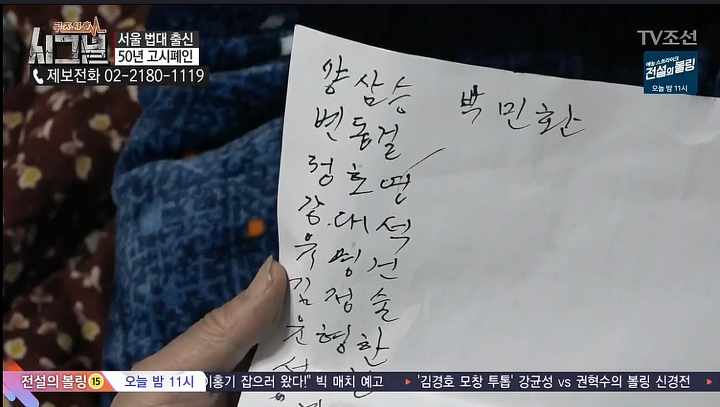 구조신호
시그널
서울 법대 출신
50년 고시폐인
제보전화 02-2180-1119
TV조선
예능 스트라이크
전설의 볼링
오늘 밤 11시
양삼승 박민환
변동걸
정호연
강대석
유명건
김정술
윤형한
전설의 볼링 15 오늘 밤 11시 이홍기 잡으러 왔다!" 빅 매치 예고 ▶ '김경호 모창 투톱' 강균성 vs 권혁수의 볼링 신경전